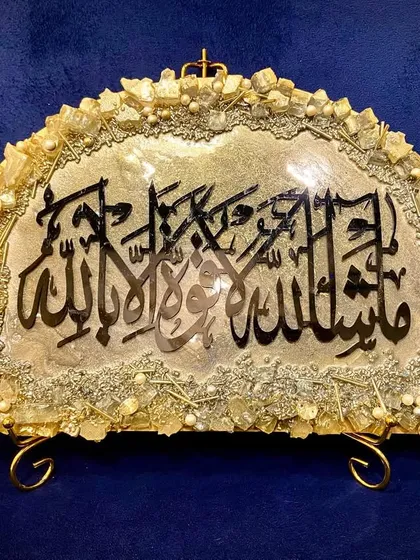 ماشاءالله لا قوة إلا بالله